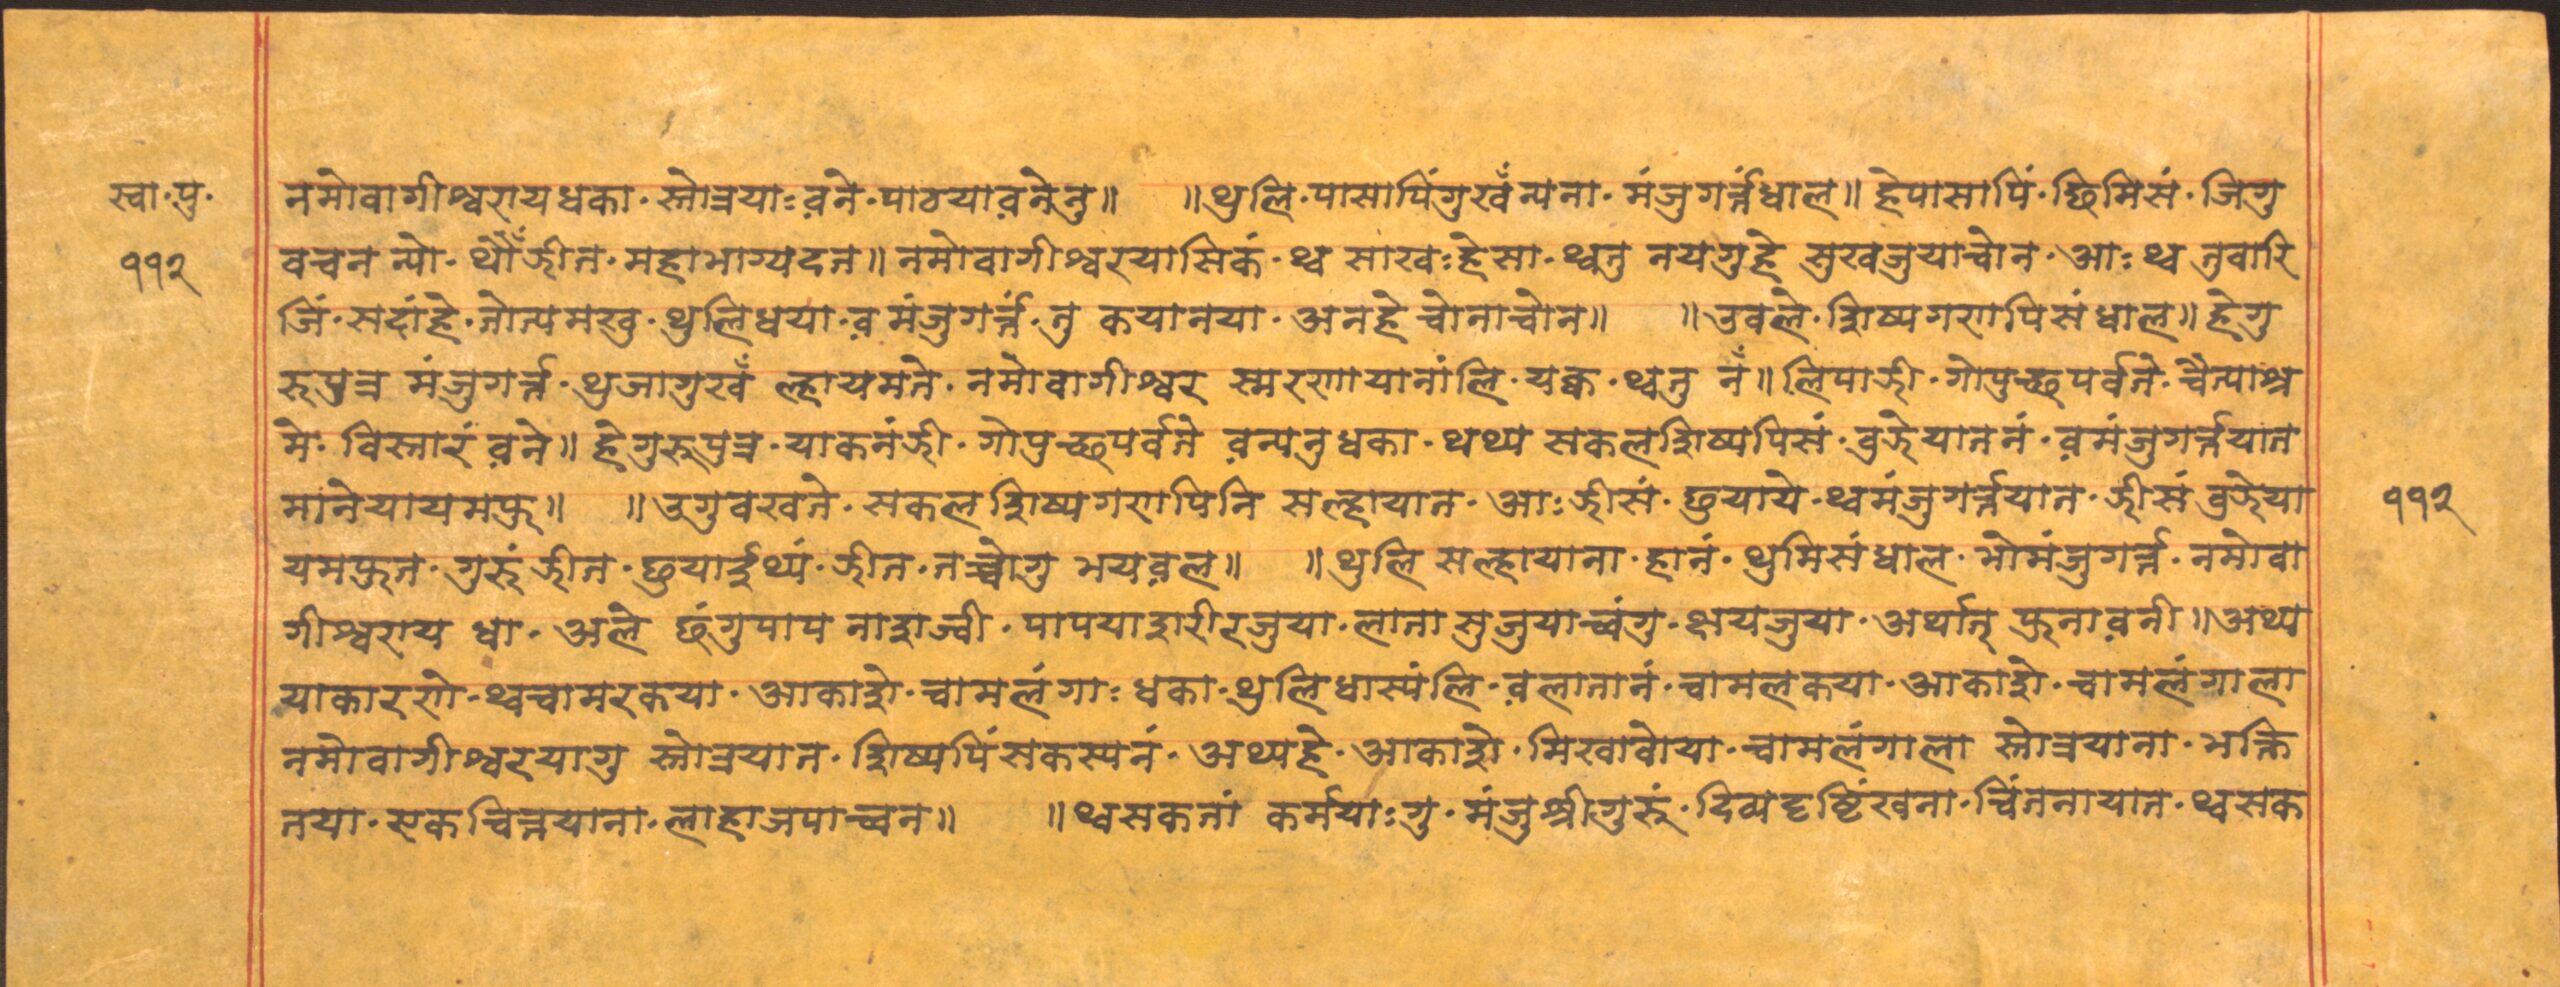 स्वा·पु·
११२
नमोवागीश्वरायधका·स्तोत्रयाःव़ने·पाठयाव़नेनु॥ ॥थुलि·पासापिंगुखँन्यना·मंजुगर्त्तंधाल॥हेपासापिं·छिमिसं·जिगु
वचन न्यो·थौंझीत·महाभाग्यदत॥नमोवागीश्वरयासिकं·थ्व साखःहेसा·थ्वनु नयगुहे सुखजुयाचोन·आःथ्व नुवारि
जिं·सदांहे·तोत्यमखु·थुलिधया·व़मंजुगर्त्तं·नु कयानया·अनहे चोनाचोन॥ ॥उवले·शिष्यगणपिसंधाल॥हेगु
रुपुत्र मंजुगर्त्त·थुजागुखँ ल्हायमते·नमोवागीश्वर स्मरणयानांलि·यक्व·थ्वनु नँ॥लिपाझी·गोपुच्छपर्वते·चैत्याश्र
मे·विस्तारं व़ने॥हेगुरुपुत्र·याकनंझी·गोपुच्छपर्वते व़न्यनुधका·थथ्य सकलशिष्यपिसं·वुझेयातनं·व़मंजुगर्त्तयात
मानेयायमफु॥ ॥उगुवखते·सकलशिष्यगणपिनि सल्हायात·आःझीसं·छुयाये·थ्वमंजुगर्त्तयात·झीसं वुझेया
यमफुत·गुरुंझीत·छुयाईथ्यं·झीत·तच्वोगु भयव़ल॥ ॥थुलि सल्हायाना·हानं·थुमिसंधाल·भोमंजुगर्त्त·नमोवा
गीश्वराय धा·अले छंगुपाप नाशज्वी·पापयाशरीरजुया·लाता सुजुयाच्वंगु·क्षयजुया·अर्थात् फुनाव़नी॥अथ्य
याकारणे·थ्वचामरकया·आकाशे·चामलंगाः धका·थुलिधास्यंलि·व़लातानं·चामलकया·आकाशे·चामलंगाला
नमोवागीश्वरयागु स्तोत्रयात·शिष्यपिंसकस्यनं·अथ्यहे·आकाशे·मिखावोया·चामलंगाला स्तोत्रयाना·भक्ति
तया·एकचित्तयाना·लाहाजपाच्वन॥ ॥थ्वसकतां कर्मयाःगु·मंजुश्रीगुरुं·दिव्यदृष्टिंखना·चिंतनायात·थ्वसक
११२